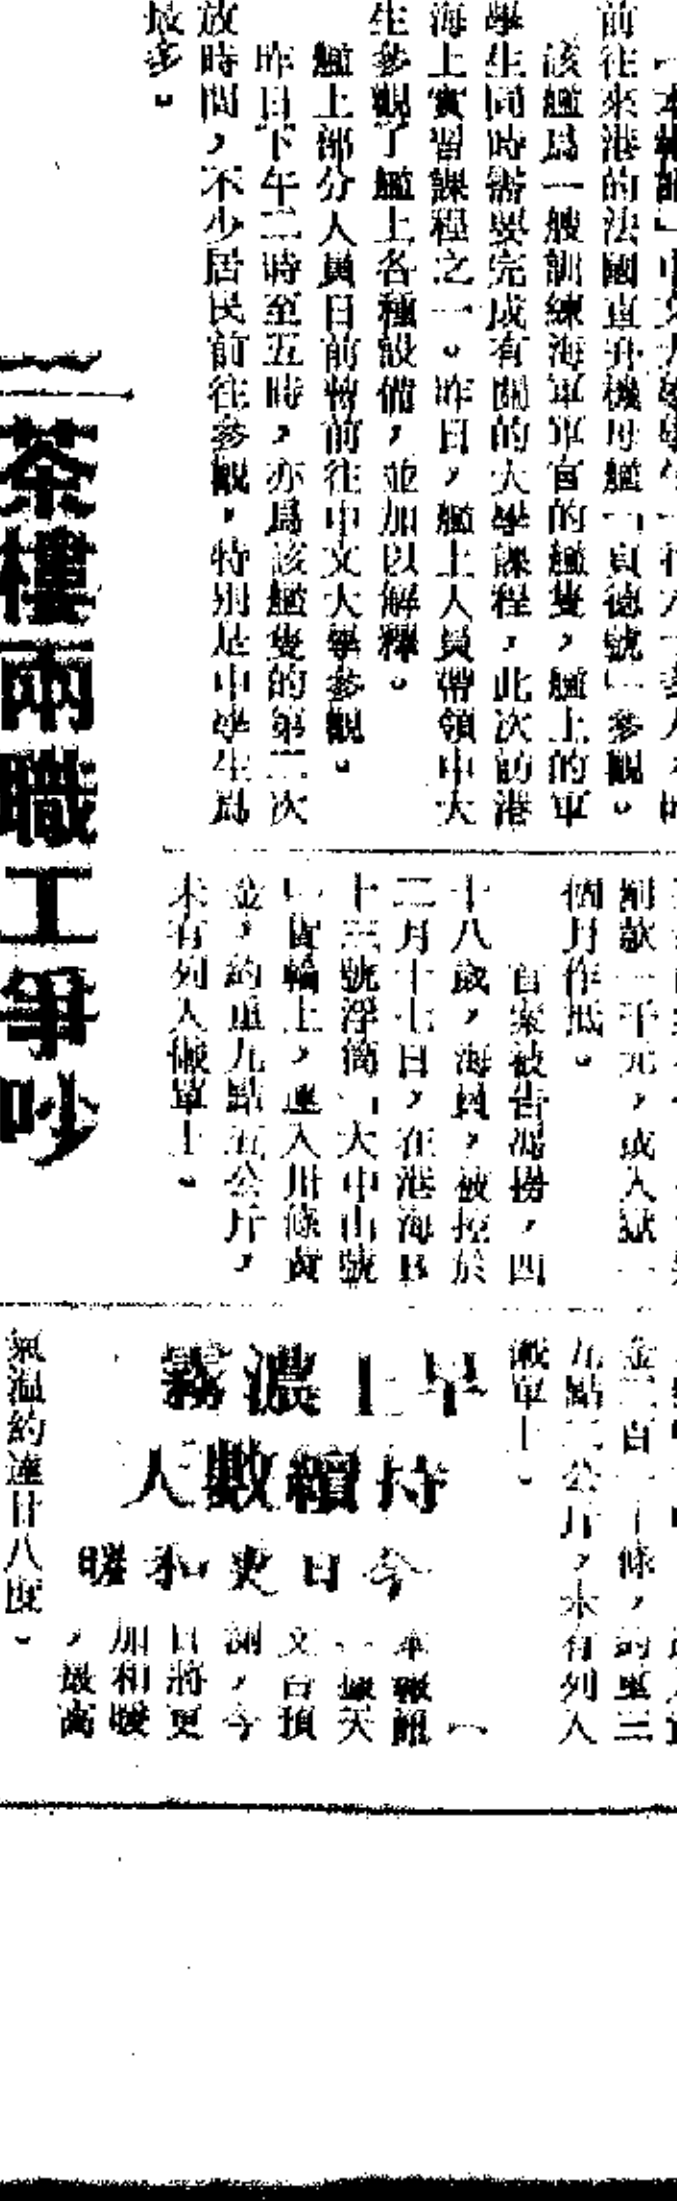 前往來港的法國直升機母艦「貞德號」參觀。
該艦爲一艘訓練海軍軍官的艦隻，艦上的軍
學生同時需要完成有關的大學課程，此次訪港
海上實習課程之一。昨日，艦上人員帶領中大
生參觀了艦上各種設備，並加以解釋。
艦上部分人員日前暫前往中文大學參觀。
昨日下午二時至五時，亦爲該艦隻的第二次
放時間，不少居民前往參觀，特別是中學生爲
最多。
罰款一千元，或入獄一
個月作抵。
首案被告馮撈，四
十八歲，海員，被控於
二月十七日，在港海B
十三號浮筒「大中山號
」貨輪上，運入卅條黃
金，約重九點五公斤，
未有列入儎單上。
金二百一十條，約重三
九點二公斤，未有列入
儎單上。
早上濃霧
持續數人
今日更和暖
（
本報訊
）據天
文台預
測，今
日將更
加和暖
，最高
氣溫約達廿八度。
二茶樓兩職工爭吵